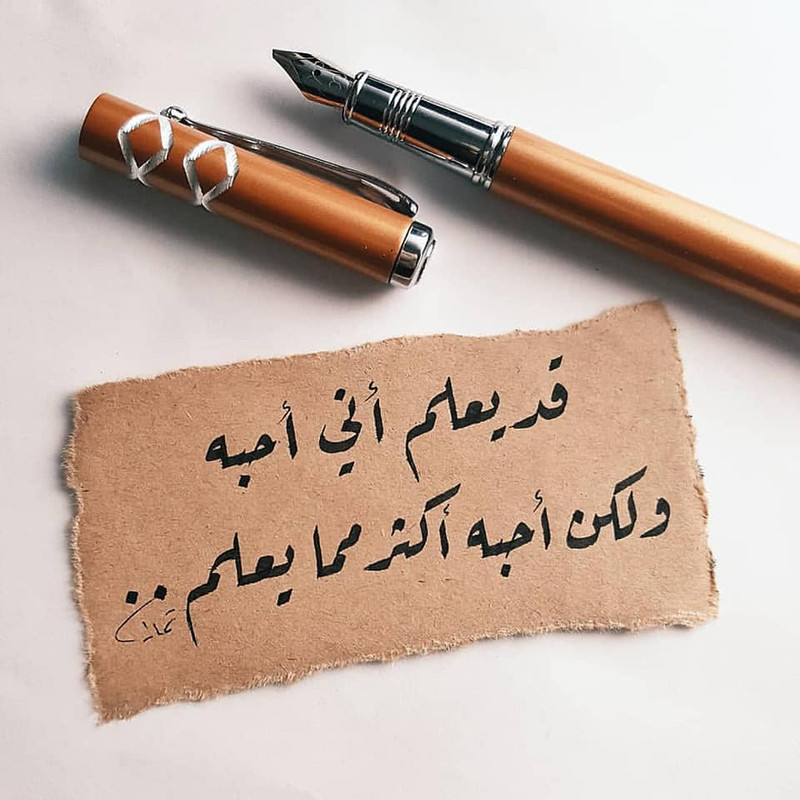 قد يعلم أني أحبه
ولكن أحبه أكثر مما يعلم ..